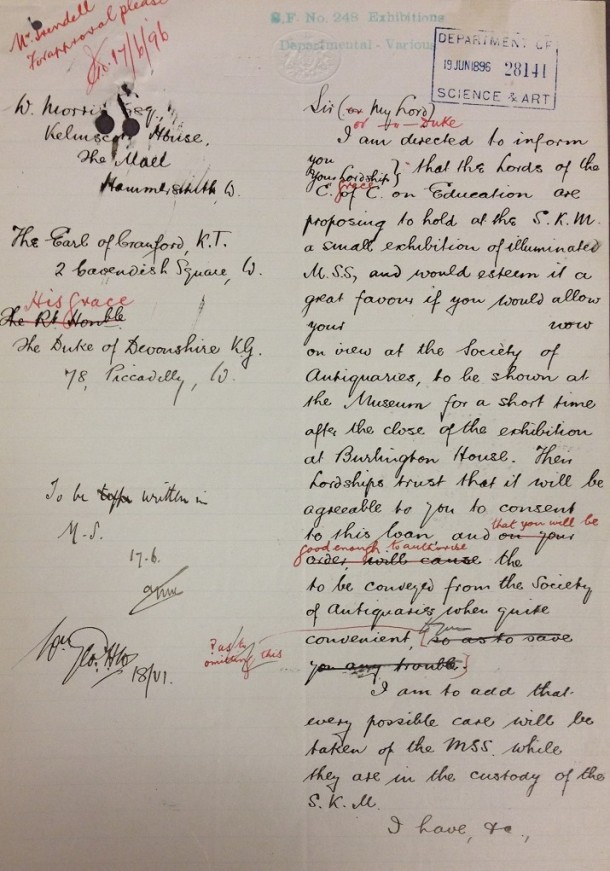 S.F. No. 248 Exhibitions
Departmental - Various
DEPARTMENT OF
19 JUN 1896 28141
SCIENCE & ART
For approval please
17/6/96
W. Morris Esq.,
Kelmscott House,
The Mall
Hammersmith, W.
The Earl of Cranford, K.T.
2 Cavendish Square, W.
His Grace
The Rt Honble
The Duke of Devonshire KG.
78, Piccadilly, W.
To be written in
M.S.
17.6.
18/VI.
Pass by
omitting this
Sir (or My Lord)
or to Duke
I am directed to inform
you
Your Lordship } that the Lords of the
Grace
C. of C. on Education are
proposing to hold at the S.K.M.
a small exhibition of illuminated
M.S.S, and would esteem it a
great favour if you would allow
your now
on view at the Society of
Antiquaries, to be shown at
the Museum for a short time
after the close of the exhibition
at Burlington House. Their
Lordships trust that it will be
agreeable to you to consent
that you will be
to this loan, and on your
good enough to authorise
order, will cause the
to be conveyed from the Society
of Antiquaries when quite
convenient, [so as to save
you any trouble.]
I am to add that
every possible care will be
taken of the MSS. while
they are in the custody of the
S.K.M.
I have, &c.,